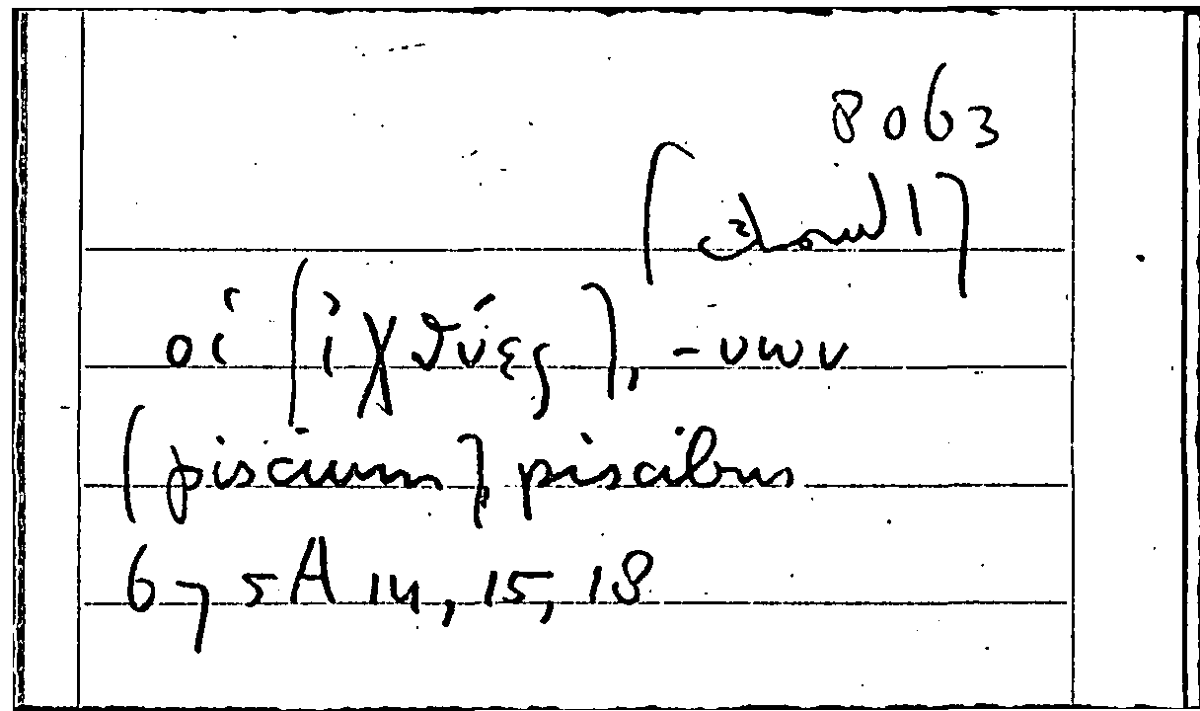 8063
οἱ [ἰχθύες], -υων
[piscium], piscibus
675A 14, 15, 18